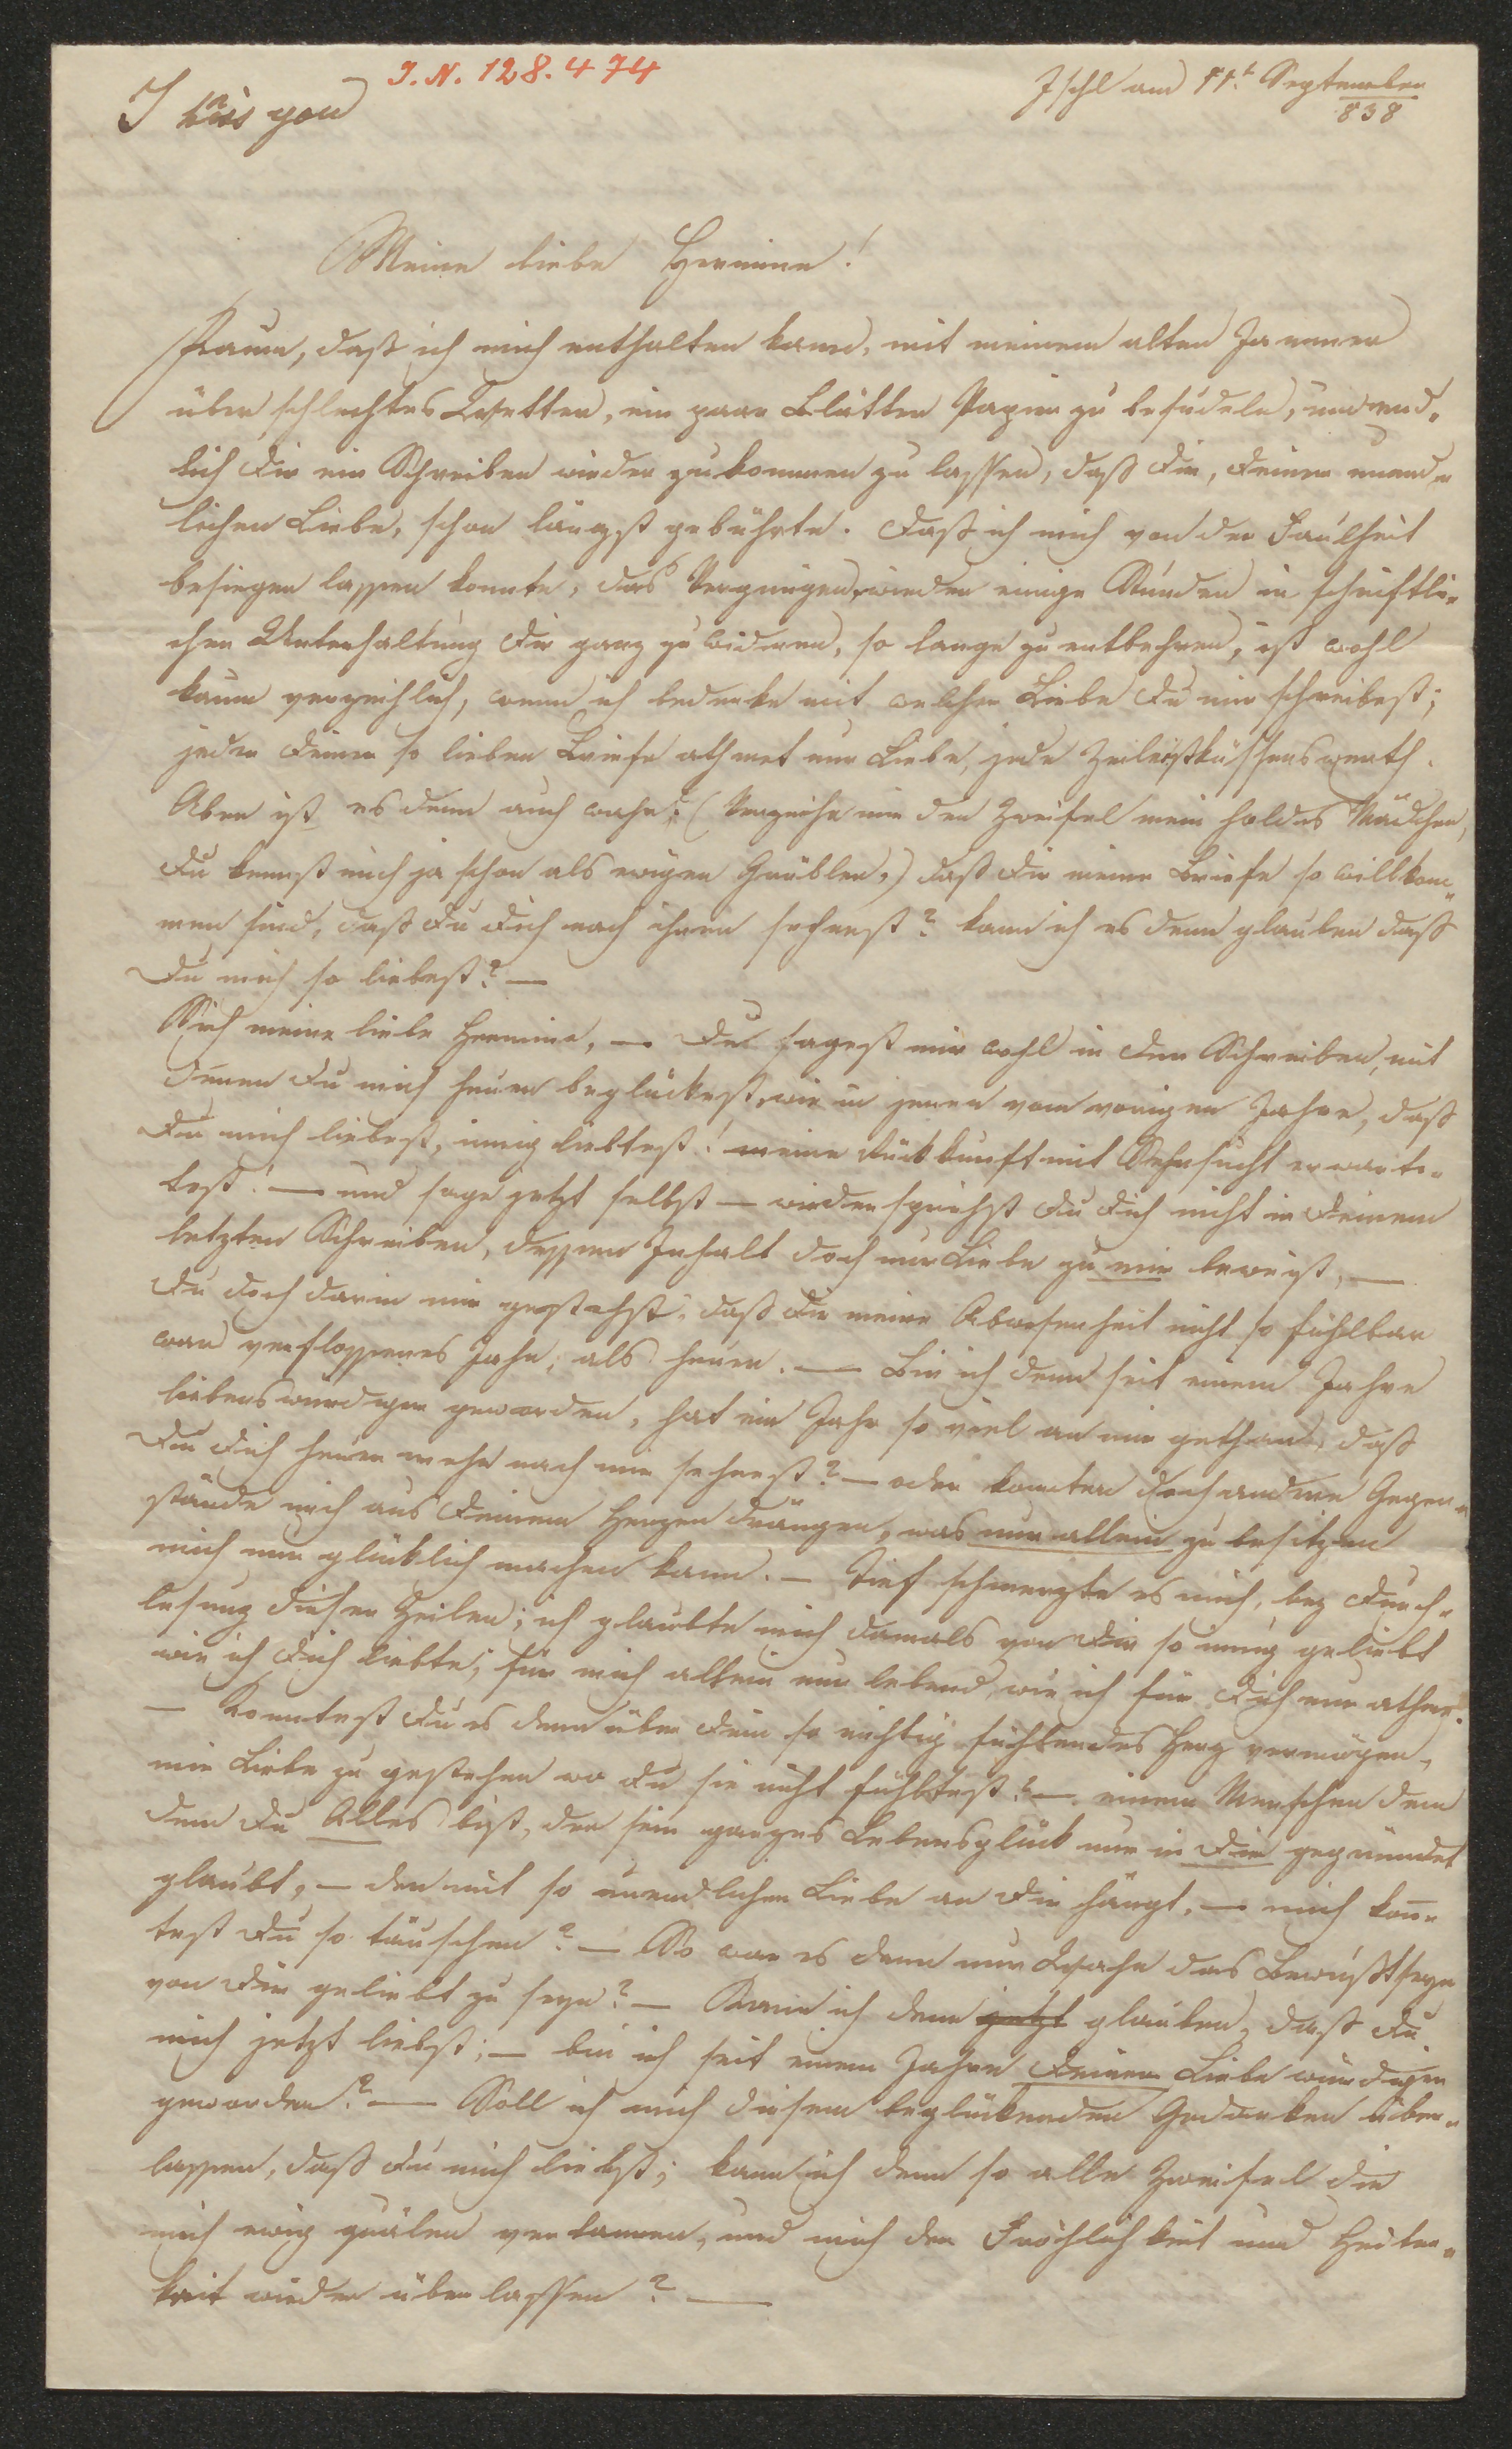 I. N. 128.474
I kiss you
Ischl am 11t September
838
Meine liebe Hermine!
Kaum, daß ich mich enthalten kann, mit meinem alten Jammer
über schlechtes Wetter, ein paar Blätter Papier zu besudeln, um end-
lich Dir ein Schreiben wieder zukommen zu lassen, daß Dir, Deiner unend-
lichen Liebe, schon längst gebührte. Daß ich mich von der Faulheit
besiegen lassen konnte, das Vergnügen, wieder einige Stunden in schriftli-
cher Unterhaltung Dir ganz zu widmen, so lange zu entbehren, ist wohl
kaum verzeihlich, wenn ich bedenke mit welcher Liebe Du mir schreibest;
jeder Deiner so lieben Briefe athmet nur Liebe, jede Zeile ist küssenswerth.
Aber ist es denn auch wahr; (Verzeihe mir den Zweifel mein holdes Mädchen,
Du kennst mich ja schon als ewigen Grübler,) daß Dir meine Briefe so willkom-
men sind, daß Du Dich nach ihnen sehnest? kann ich es denn glauben daß
Du mich so liebest? —
Sieh meine liebe Hermine, — Du sagest mir wohl in den Schreiben, mit
denen Du mich heuer beglückest, wie in jenen vom vorigen Jahre, daß
Du mich liebest, innig liebtest! meine Rückkunft mit Sehnsucht erwarte-
test! — und sage jetzt selbst — widersprichst Du Dich nicht in Deinem
letzten Schreiben, dessen Inhalt doch nur Liebe zu mir beweist, —
Du doch darin mir gestehst, daß Dir meine Abwesenheit nicht so fühlbar
war verflossenes Jahr, als heuer. — Bin ich denn seit einem Jahre
liebenswürdiger geworden, hat ein Jahr so viel an mir gethan, daß
Du Dich heuer mehr nach mir sehnest? — oder konnten doch andere Gegen-
stände mich aus Deinem Herzen drängen, was nur allein zu besitzen
mich nur glücklich machen kann. — Tief schmerzte es mich, bey Durch-
lesung dieser Zeilen; ich glaubte mich damals von Dir so innig geliebt
wie ich Dich liebte, für mich allein nur lebend, wie ich für Dich nur athme.
— Konntest Du es denn über Dein so richtig fühlendes Herz vermögen,
mir Liebe zu gestehen wo Du sie nicht fühltest? — einem Menschen dem
denn Du Alles bist, der sein ganzes Lebensglück nur in Dir gegründet
glaubt, — der mit so unendlicher Liebe an Dir hängt, — mich konn-
test Du so täuschen? — So war es denn nur Wahn das Bewußtseyn
von Dir geliebt zu seyn? — Kann ich denn jetzt glauben, daß Du
mich jetzt liebst; — bin ich seit einem Jahre Deiner Liebe würdiger
geworden? — Soll ich mich diesem beglückenden Gedanken über-
lassen, daß Du mich liebst; kann ich denn so alle Zweifel die
mich ewig quälen verbannen, und mich der Fröhlichkeit und Heiter-
keit wieder überlassen? —